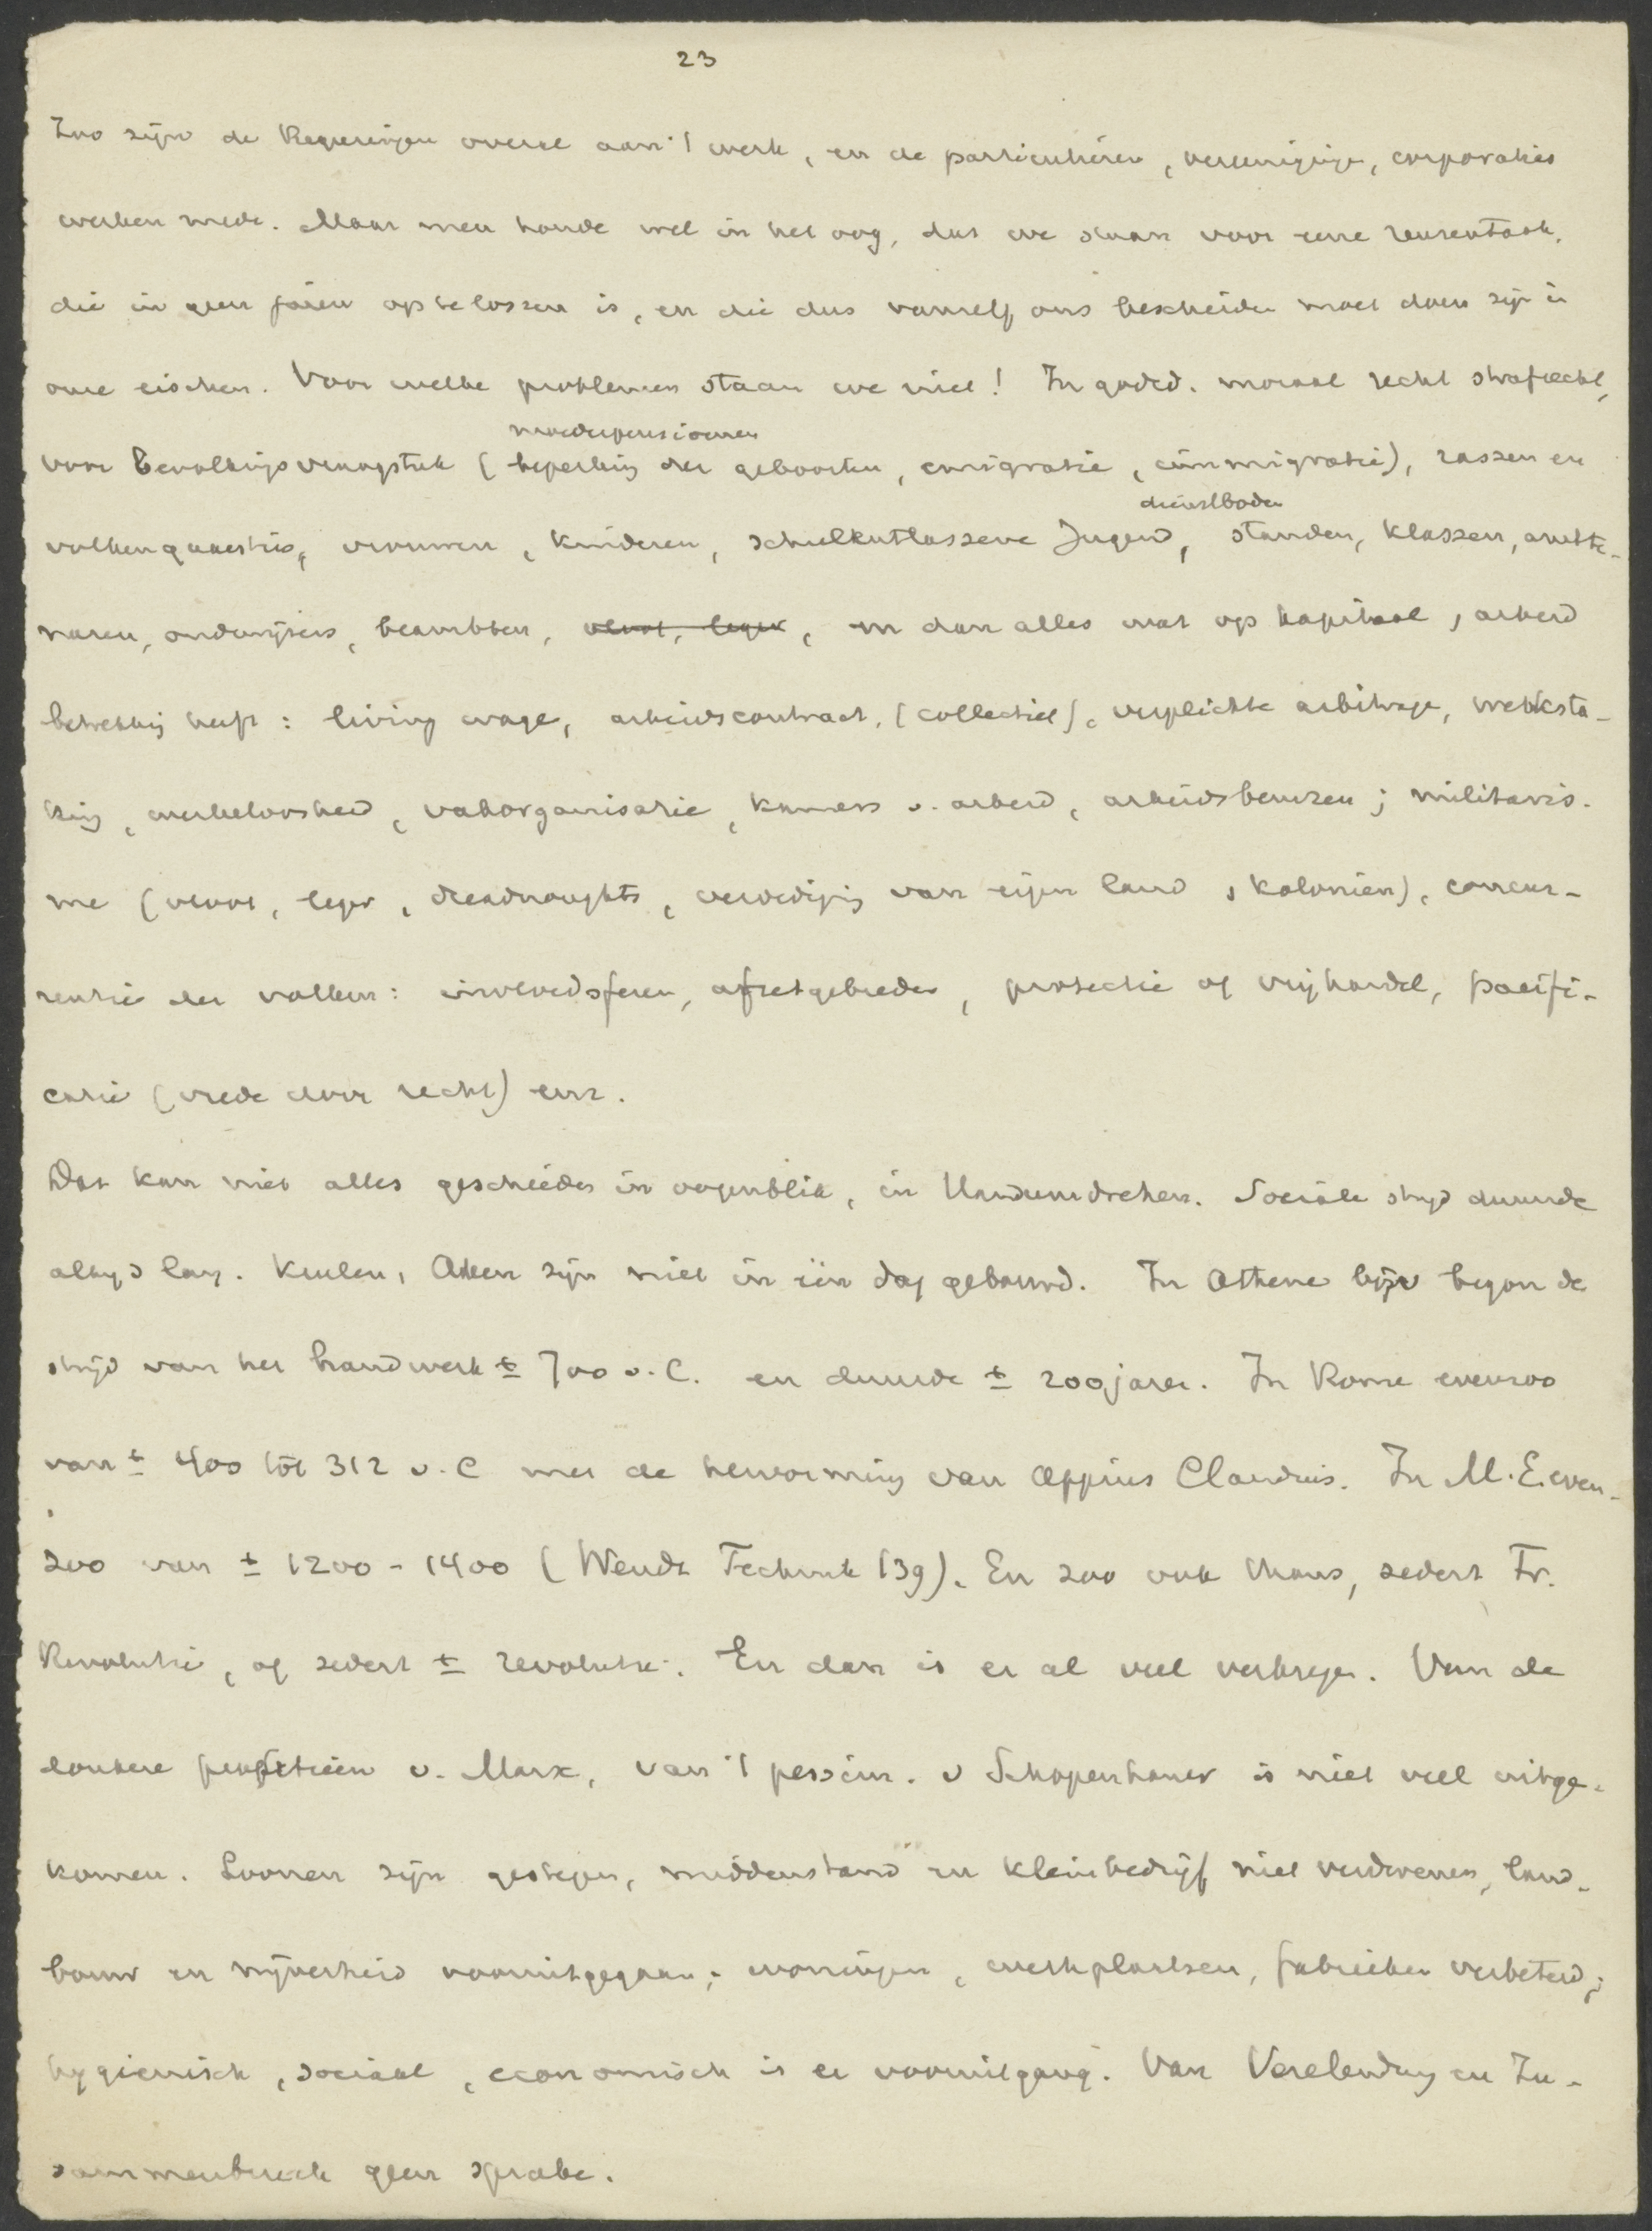 23
Zoo zijn de Regeeringen overal aan 't werk, en de particulieren, vereenigingen, corporaties
werken mede. Maar men houde wel in het oog, dat we staan voor eene reuzentaak,
die in geen jaren op te lossen is, en die dus vanzelf ons bescheiden moet doen zijn in
onze eischen. Voor welke problemen staan we niet! In godsd. moraal recht strafrecht,
moederpensioenen
voor bevolkingsvraagstuk (beperking der geboorten, emigratie, immigratie), rassen en
dienstboden
volkenquaesties, vrouwen, kinderen, schulentlassene Jugend, standen, klassen, ambte-
naren, onderwijzers, beambten, vloot, leger, en dan alles wat op kapitaal, arbeid
betrekking heeft: living wage, arbeidscontract, (collectief), verplichte arbitrage, werksta-
king, werkeloosheid, vakorganisatie, kamers v. arbeid, arbeidsbeurzen; militaris-
me (vloot, leger, dreadnoughts, verdediging van eigen land, koloniën), concur-
rentie der volken: invloedsferen, afzetgebieden, protectie of vrijhandel, pacifi-
catie (vrede door recht) enz.
Dat kan niet alles geschieden in oogenblik, in Handumdrehen. Sociale strijd duurde
altijd lang. Keulen, Aken zijn niet in één dag gebouwd. In Athene bijv begon de
strijd van het handwerk ± 700 v. C. en duurde ± 200 jaren. In Rome evenzoo
van ± 400 tot 312 v. C met de hervorming van Appius Claudius. In M. E. even-
zoo van ± 1200 - 1400 (Wendt Technik 139). En zoo ook thans, sedert Fr.
Revolutie, of sedert ± revolutie. En dan is er al veel verkregen. Van de
donkere profetieën v. Marx, van 't pessim. v Schopenhauer is niet veel uitge-
komen. Loonen zijn gestegen, middenstand en kleinbedrijf niet verdwenen, land-
bouw en nijverheid vooruitgegaan; woningen, werkplaatsen, fabrieken verbeterd;
hygienisch, sociaal, economisch is er vooruitgang. Van Verelendung en Zu-
sammenbruch geen sprake.